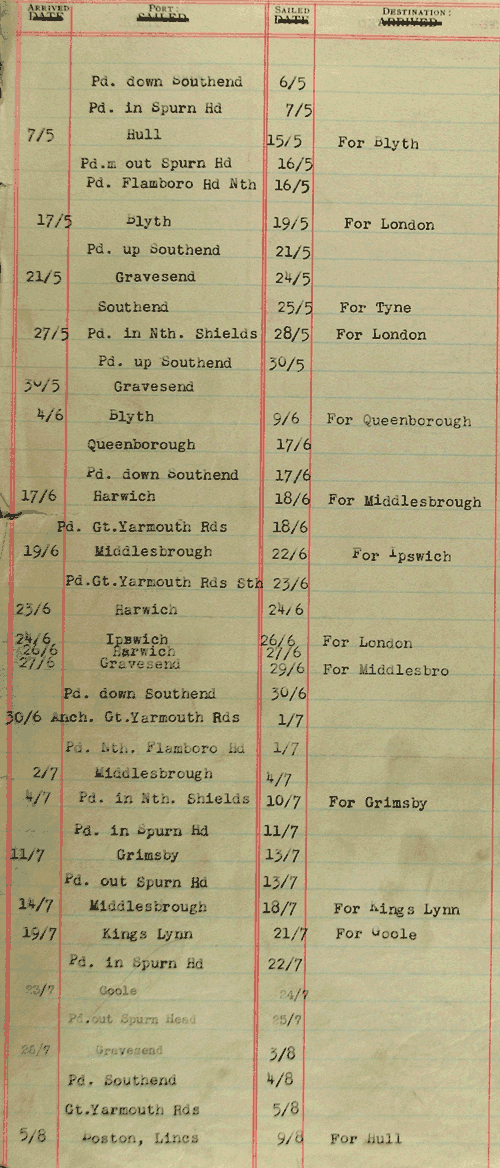 ARRIVED DATE PORT: SAILED SAILED DATE DESTINATION: ARRIVED
Pd. down Southend 6/5
Pd. in Spurn Hd 7/5
7/5 Hull 15/5 For Blyth
Pd.m out Spurn Hd 16/5
Pd. Flamboro Hd Nth 16/5
17/5 Blyth 19/5 For London
Pd. up Southend 21/5
21/5 Gravesend 24/5
Southend 25/5 For Tyne
27/5 Pd. in Nth. Shields 28/5 For London
Pd. up Southend 30/5
30/5 Gravesend
4/6 Blyth 9/6 For Queenborough
Queenborough 17/6
Pd. down Southend 17/6
17/6 Harwich 18/6 For Middlesbrough
Pd. Gt.Yarmouth Rds 18/6
19/6 Middlesbrough 22/6 For Ipswich
Pd.Gt.Yarmouth Rds Sth 23/6
23/6 Harwich 24/6
24/6 Ipswich 26/6 For London
26/6 Harwich 27/6
27/6 Gravesend 29/6 For Middlesbro
Pd. down Southend 30/6
30/6 Anch. Gt.Yarmouth Rds 1/7
Pd. Nth. Flamboro Hd 1/7
2/7 Middlesbrough 4/7
4/7 Pd. in Nth. Shields 10/7 For Grimsby
Pd. in Spurn Hd 11/7
11/7 Grimsby 13/7
Pd. out Spurn Hd 13/7
14/7 Middlesbrough 18/7 For Kings Lynn
19/7 Kings Lynn 21/7 For Goole
Pd. in Spurn Hd 22/7
23/7 Goole 24/7
Pd.out Spurn Head 25/7
26/7 Gravesend 3/8
Pd. Southend 4/8
Gt.Yarmouth Rds 5/8
5/8 Boston, Lincs 9/8 For Hull